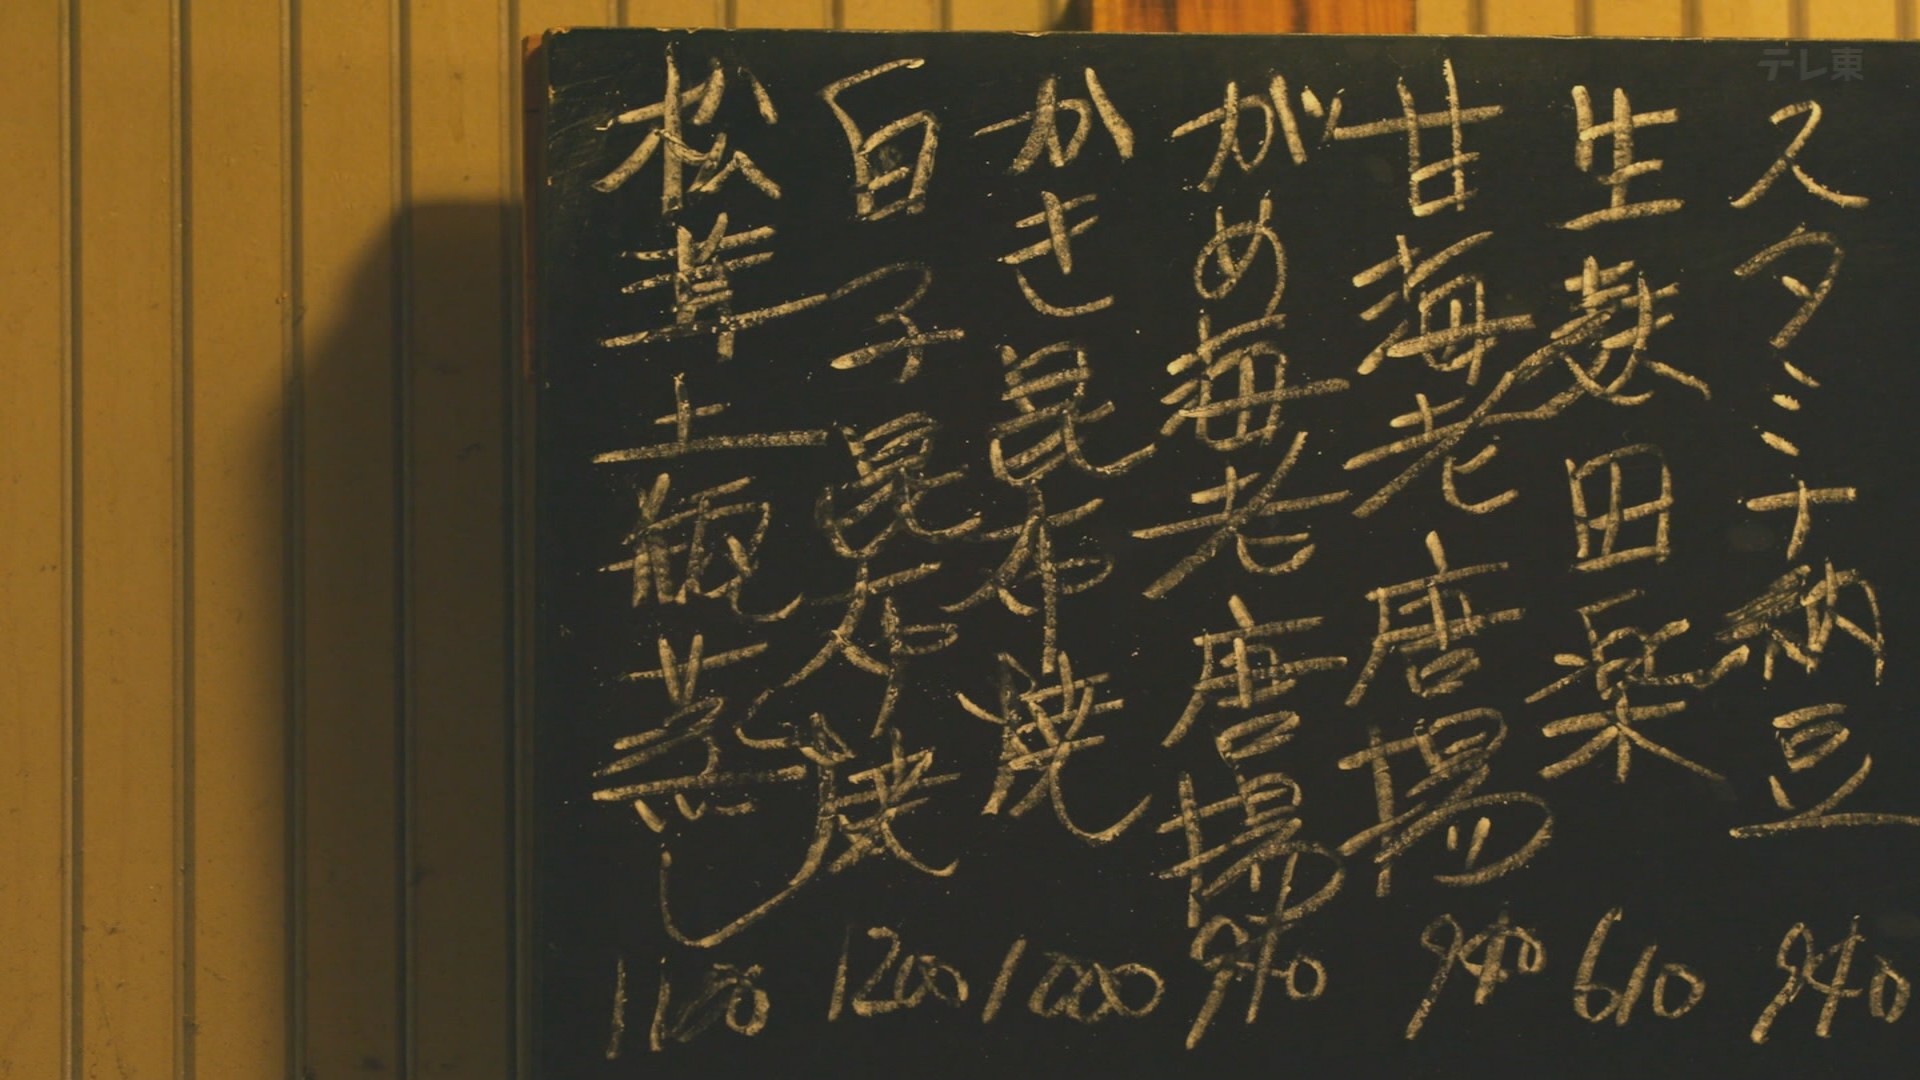 テレ東
スタミナ納豆 940
生麩田楽 610
甘海老唐揚 940
がめ海老唐揚 940
かき昆布焼 1000
白子昆布焼 1200
松茸土瓶蒸し